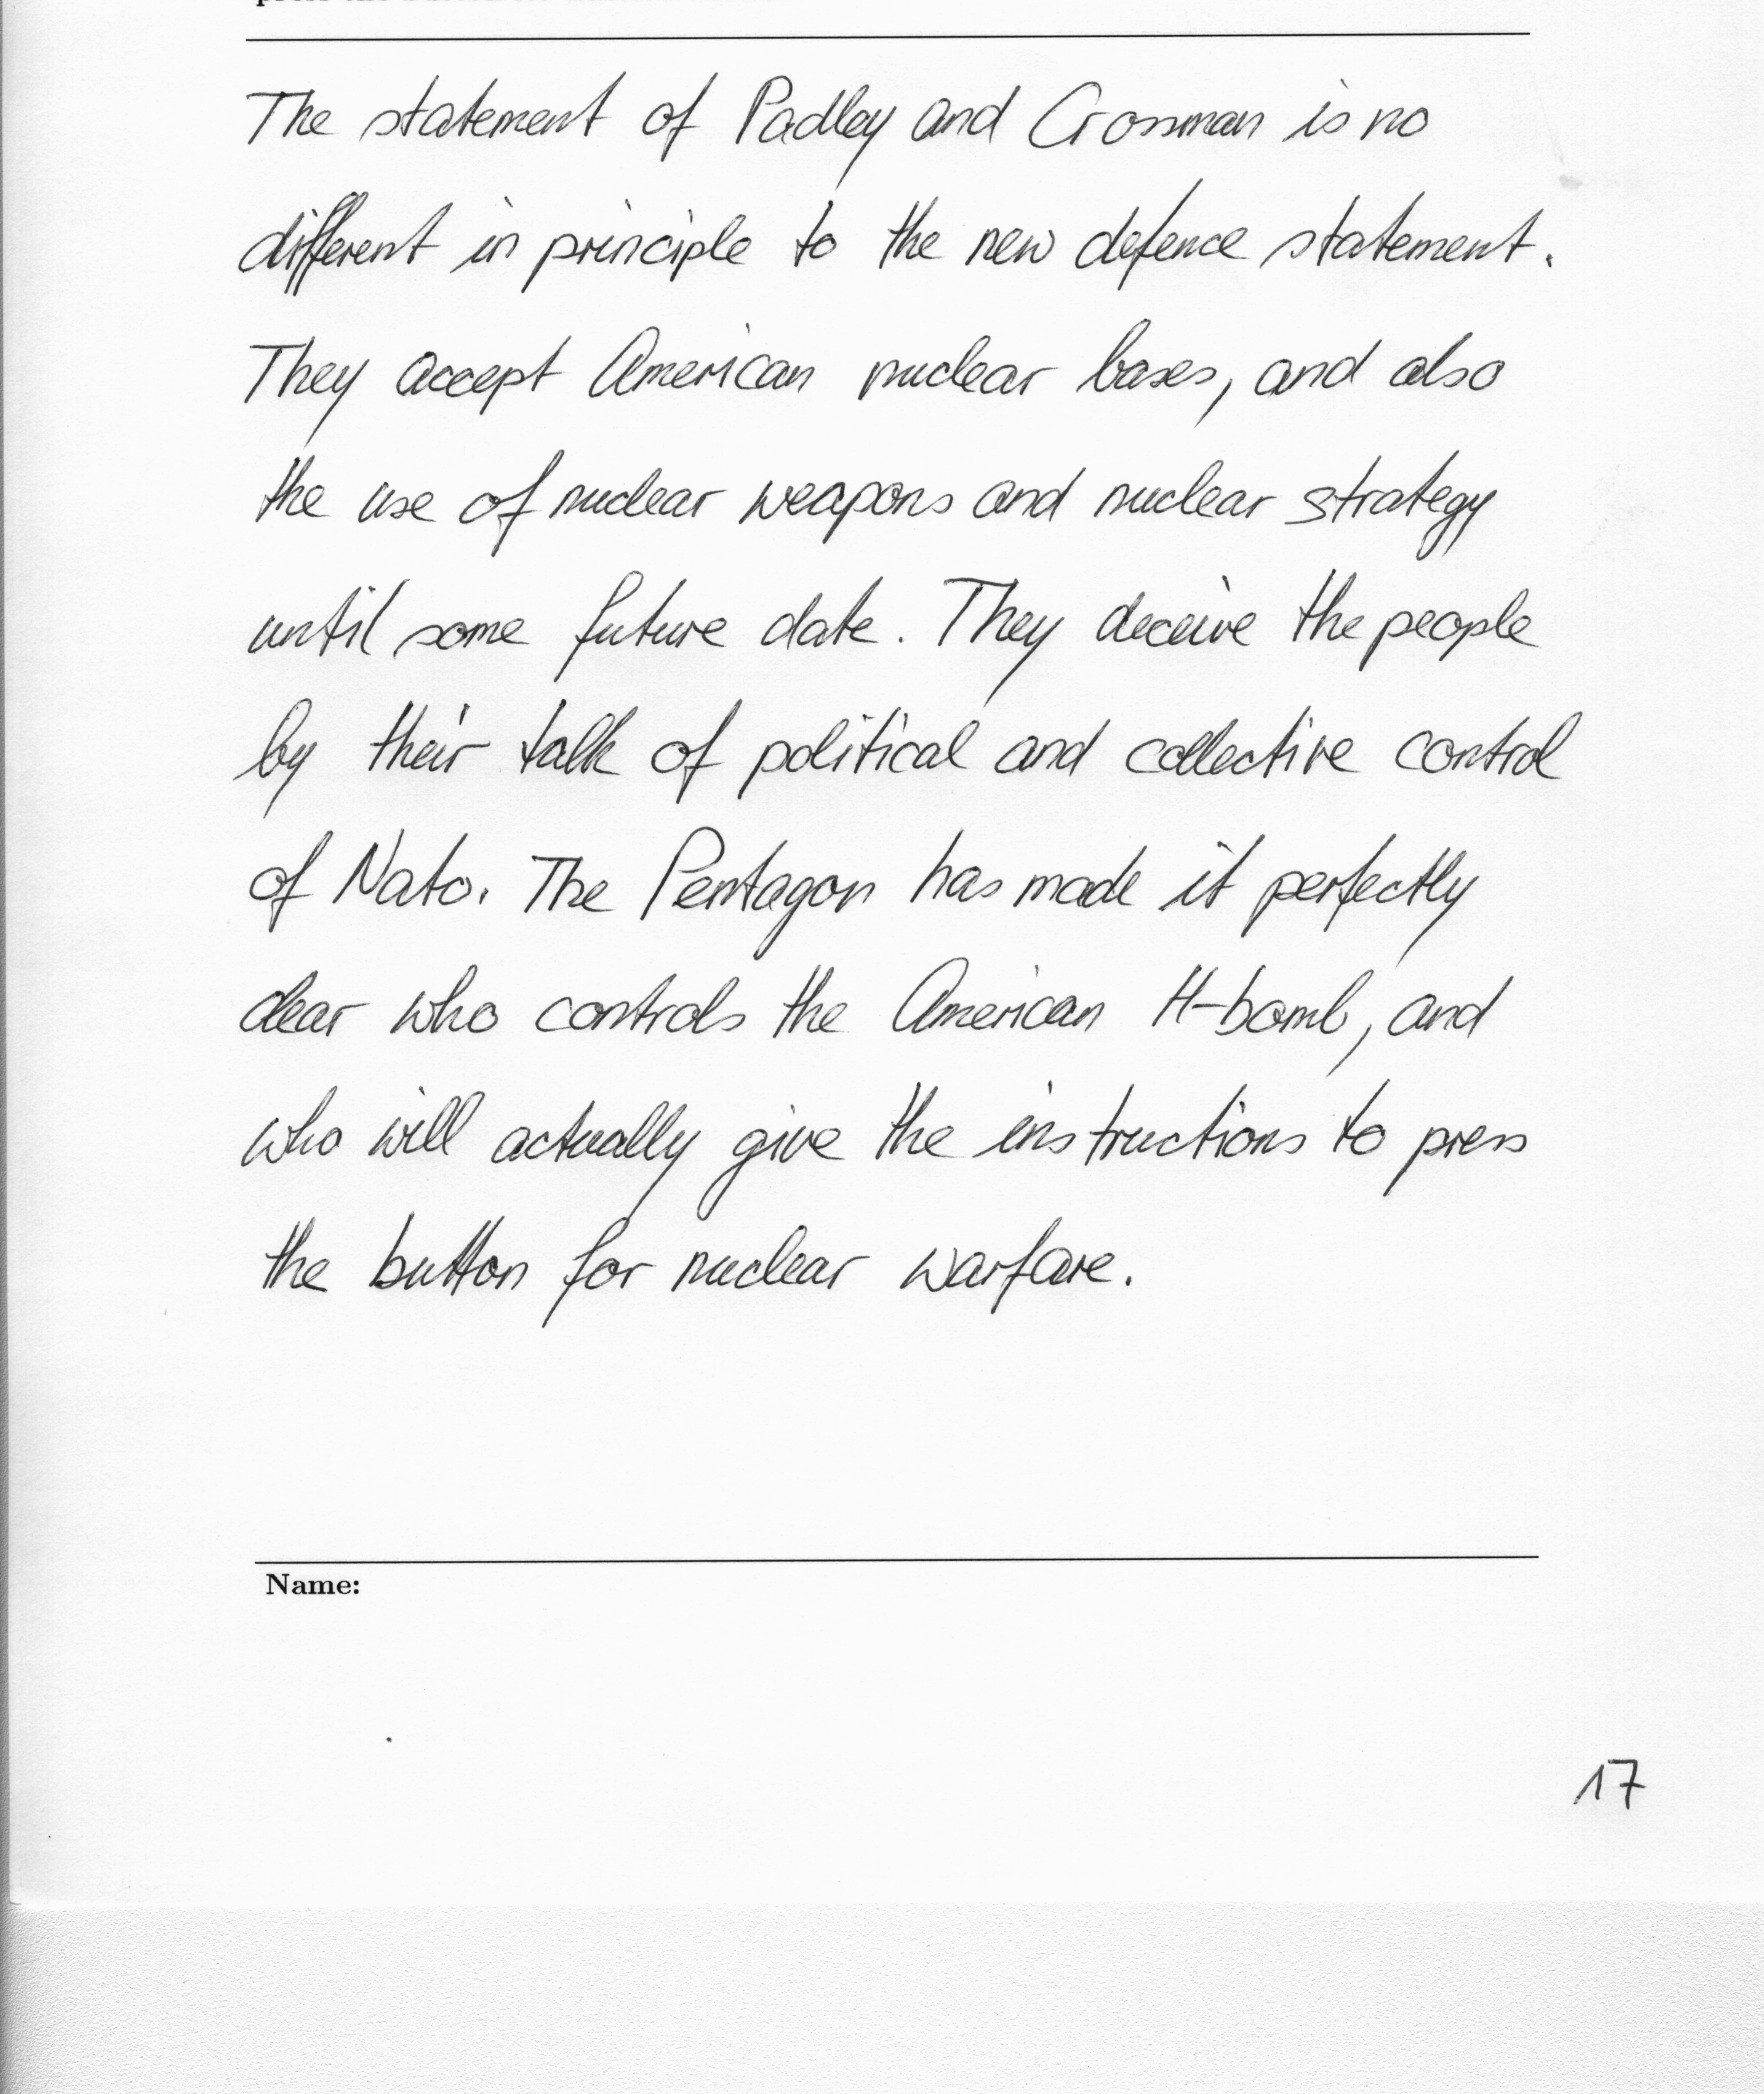 The statement of Padley and Crossman is no
different in principle to the new defence statement.
They accept American nuclear bases, and also
the use of nuclear weapons and nuclear strategy
until some future date. They deceive the people
by their talk of political and collective control
of Nato. The Pentagon has made it perfectly
clear who controls the American H-bomb, and
who will actually give the instructions to press
the button for nuclear warfare.
Name:
17